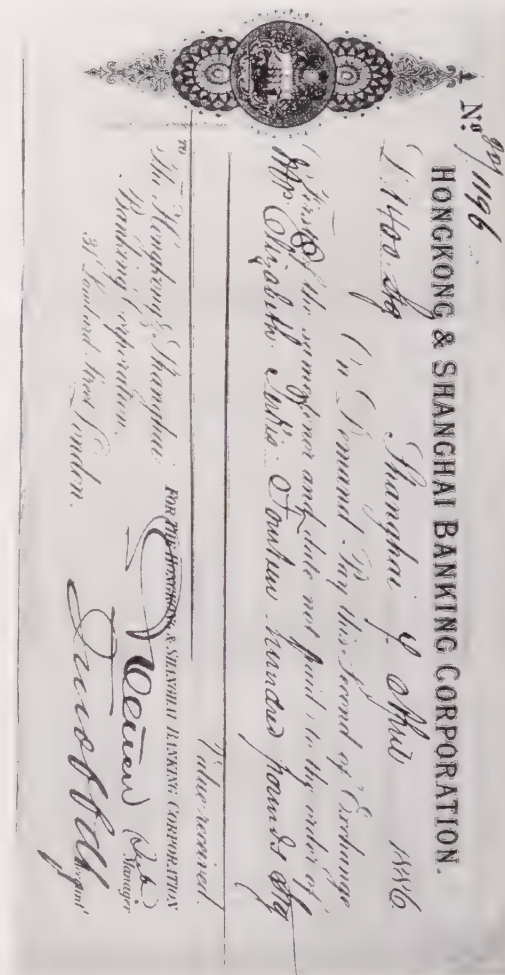 No 99/1196
HONGKONG & SHANGHAI BANKING CORPORATION.
£1400 Stg Shanghai 9 April 1886
On Demand Pay this Second of Exchange
First of the same tenor and date not paid to the order of
Mrs Elizabeth Fourteen Hundred pounds Stg
Value received.
TO
The Hongkong & Shanghai
Banking Corporation.
31 Lombard Street London.
FOR THE HONGKONG & SHANGHAI BANKING CORPORATION
Manager
Account